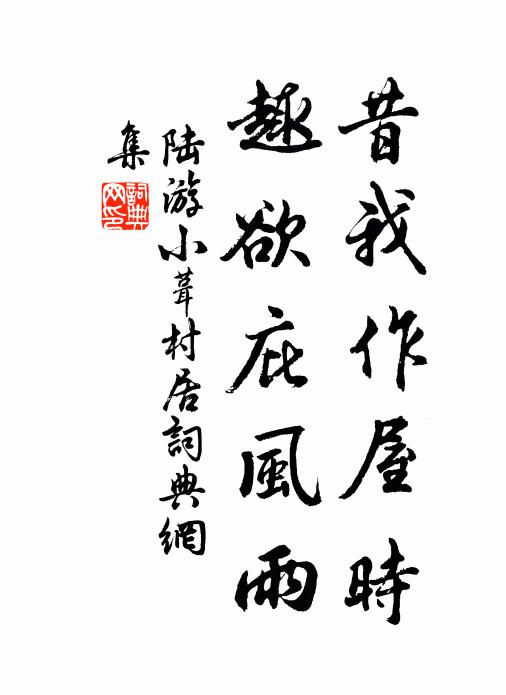 昔我作屋時
趣欲庇風雨
陸游小葺村居詞典網
集
詞典
网印